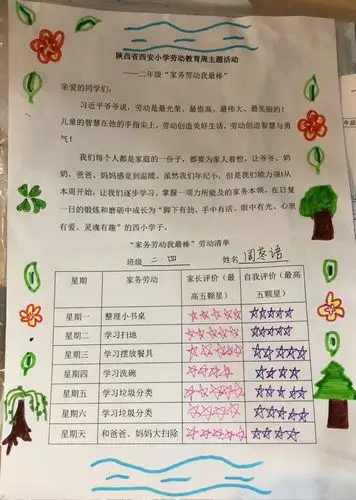 陕西省西安小学劳动教育周主题活动
——二年级“家务劳动我最棒”
亲爱的同学们：
习近平爷爷说，劳动是最光荣、最崇高、最伟大、最美丽的！
儿童的智慧在他的手指尖上，劳动创造美好生活，劳动创造智慧与勇
气！
我们每个人都是家庭的一份子，都要为家人着想，让爷爷、奶
奶，爸爸、妈妈感觉到温暖。虽然我们年纪小，但是我们能力强!从
本周开始，让我们逐步学习、掌握一项力所能及的家务本领，在日复
一日的锻炼和磨砺中成长为“脚下有劲、手中有活、眼中有光、心里
有爱、灵魂有趣”的西小学子。
“家务劳动我最棒”劳动清单
班级 二.四 姓名 周芸语
星期 家务劳动 家长评价（最高五颗星） 自我评价（最高五颗星）
星期一 整理小书桌 ☆☆☆☆☆ ☆☆☆☆☆
星期二 学习扫地 ☆☆☆☆☆ ☆☆☆☆☆
星期三 学习摆放餐具 ☆☆☆☆☆ ☆☆☆☆☆
星期四 学习洗碗 ☆☆☆☆ ☆☆☆☆☆
星期五 学习垃圾分类 ☆☆☆☆☆ ☆☆☆☆☆
星期六 学习垃圾分类 ☆☆☆☆☆ ☆☆☆☆☆
星期天 和爸爸、妈妈大扫除 ☆☆☆☆☆ ☆☆☆☆☆